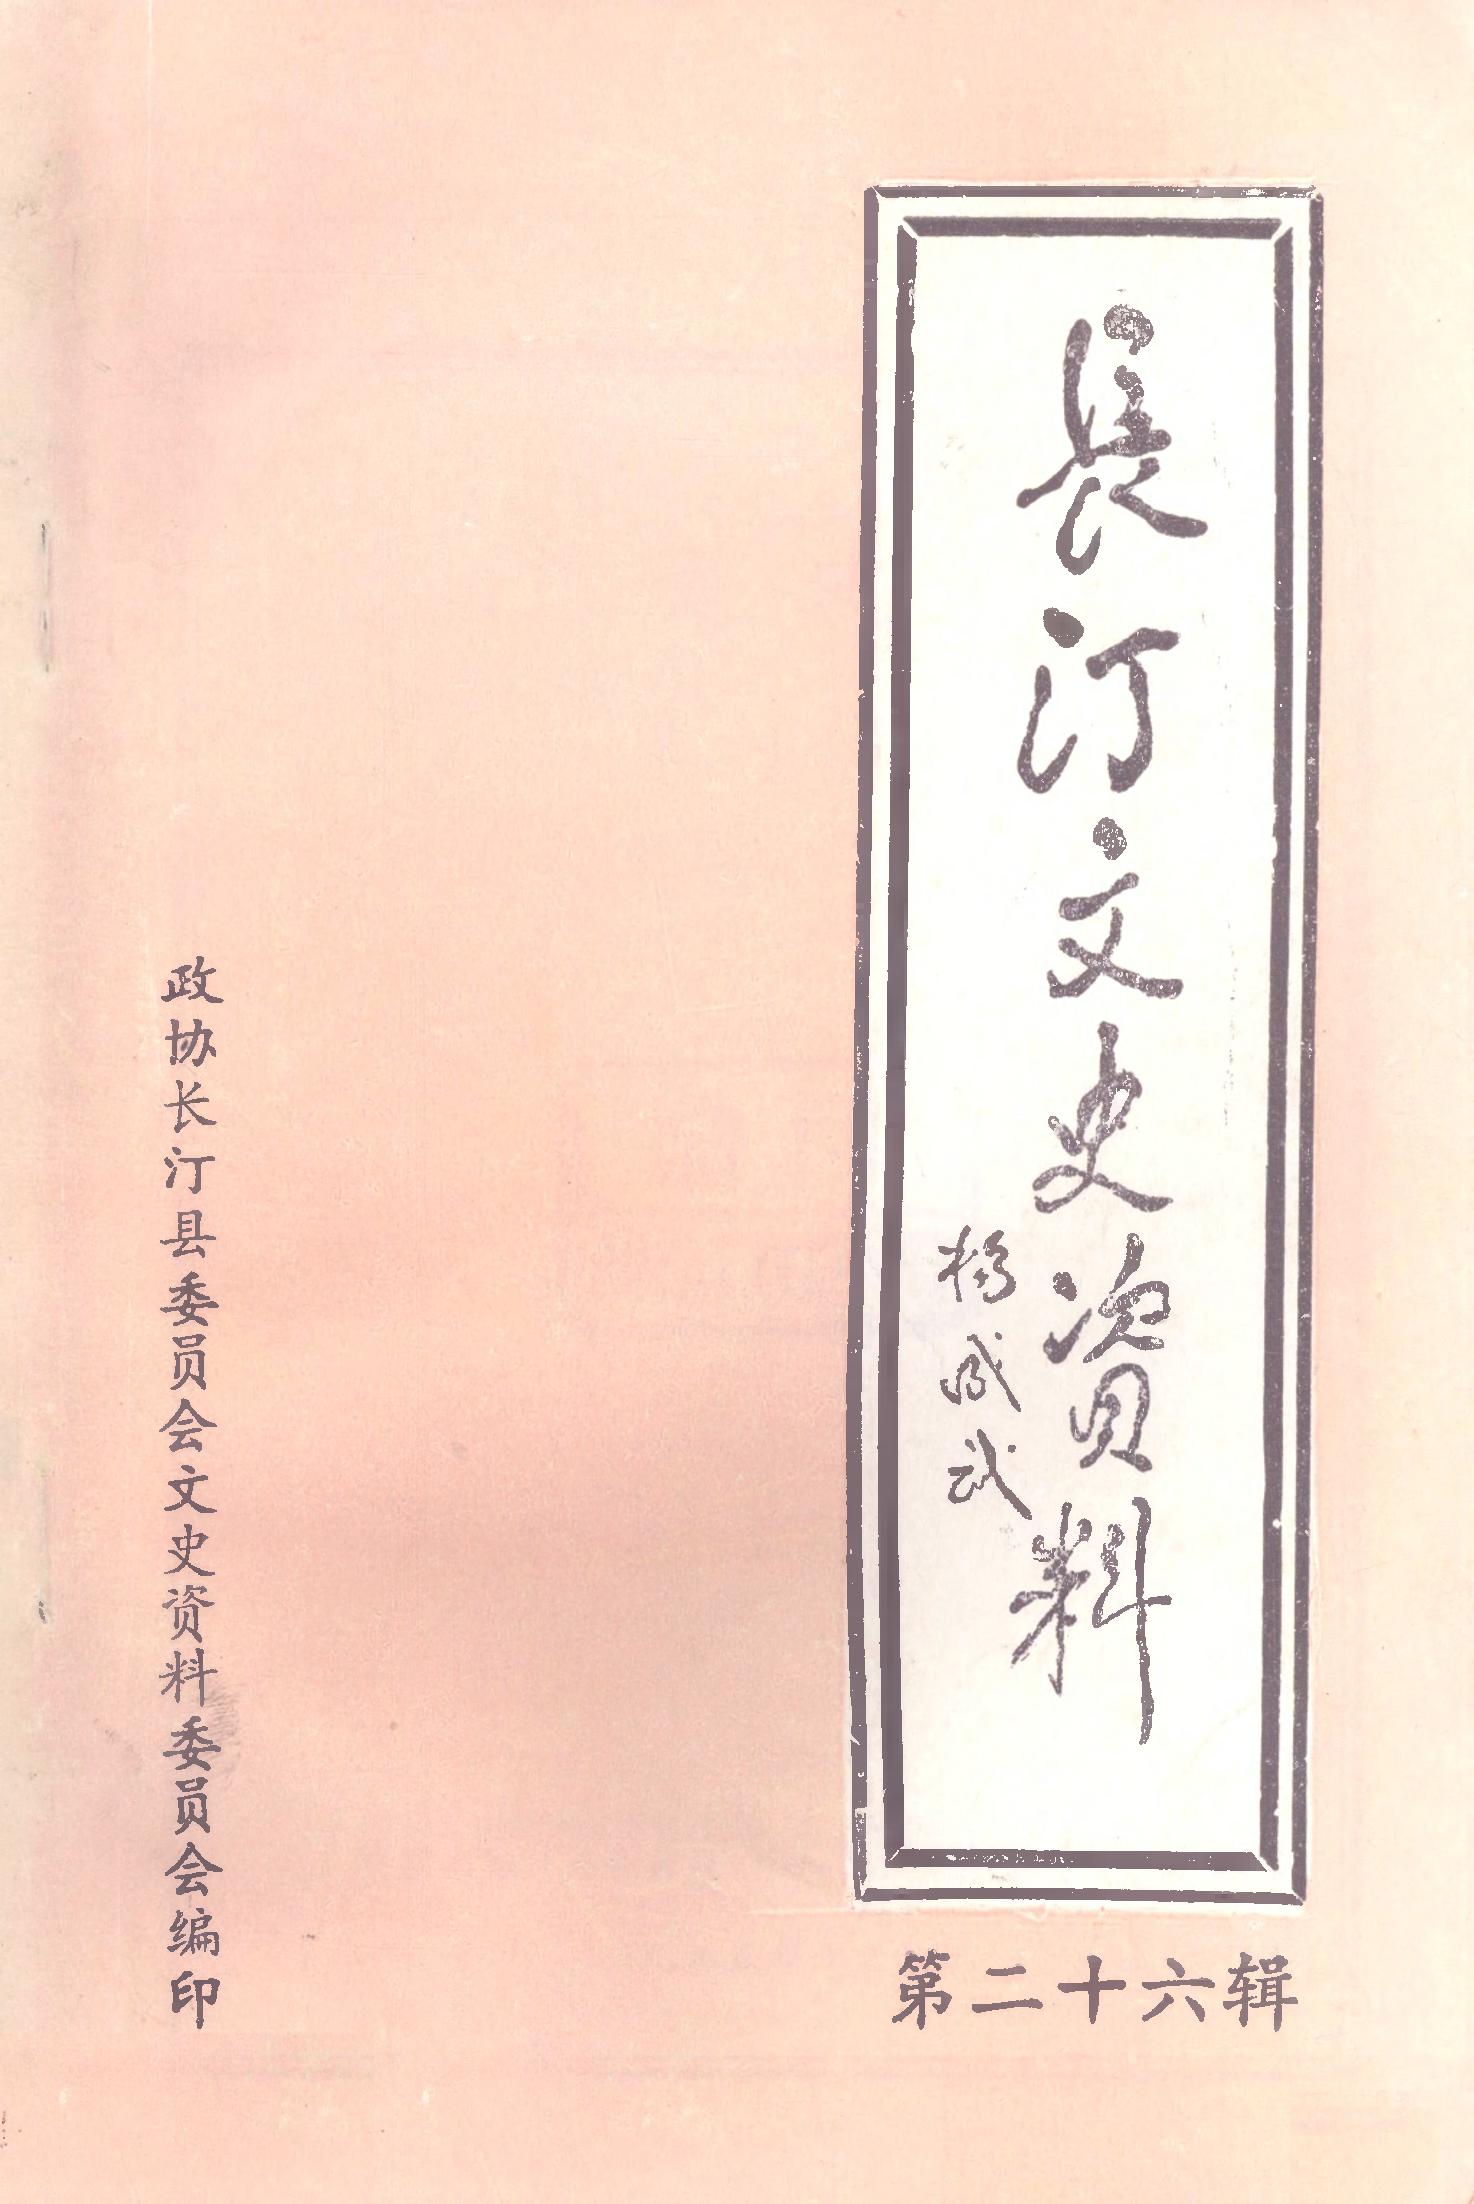 長汀文史資料
杨成武
第二十六辑
政协长汀县委员会文史资料委员会编印